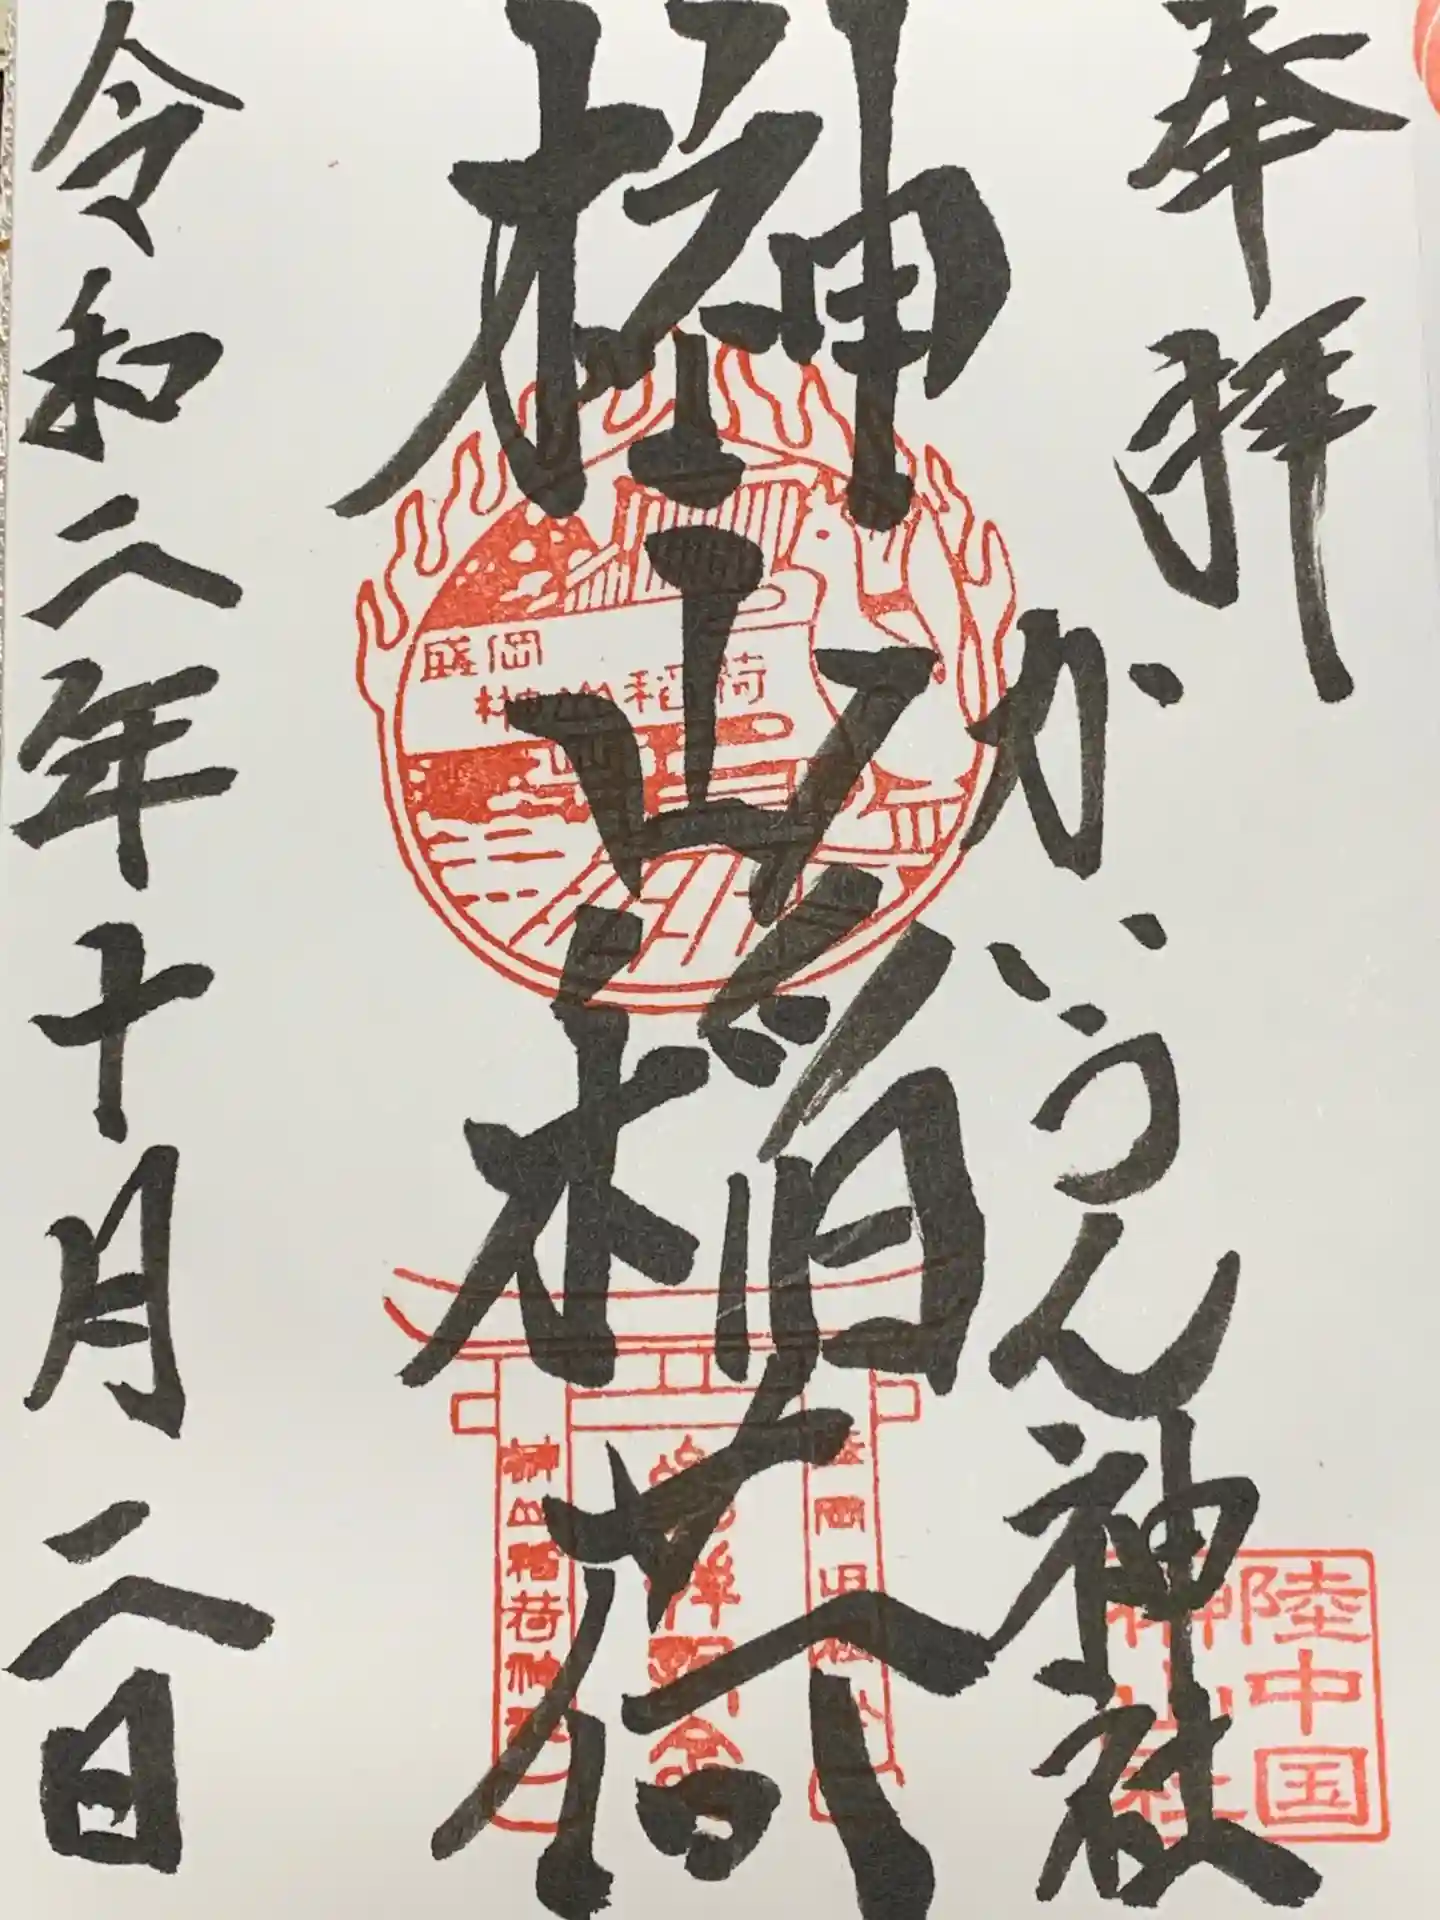 奉拝
かいうん神社
榊山稲荷
令和二年十月二八日
盛岡
榊山稲荷
陸中国
榊山社
榊山稲荷神社